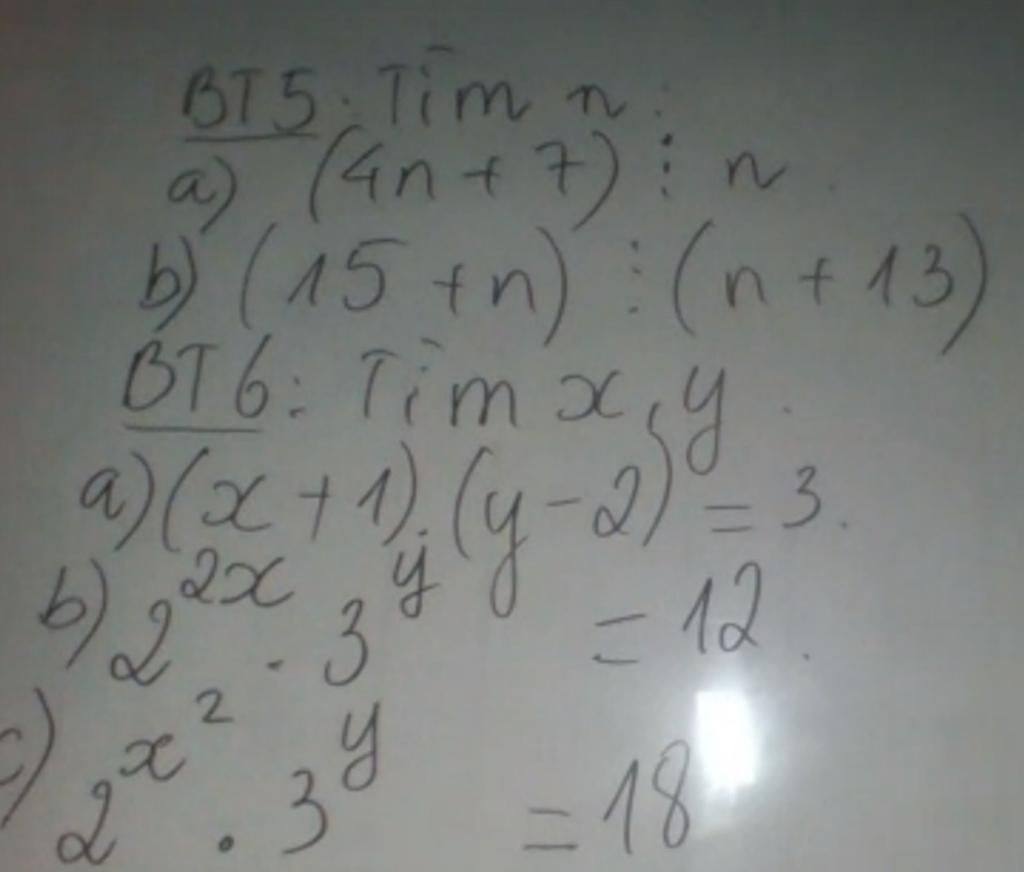 BT5: Tìm n:
a) (4n + 7) ⋮ n.
b) (15 + n) ⋮ (n + 13)
BT6: Tìm x, y.
a) (x + 1).(y - 2) = 3.
b) 2^{2x} . 3^y = 12.
c) 2^{x^2} . 3^y = 18